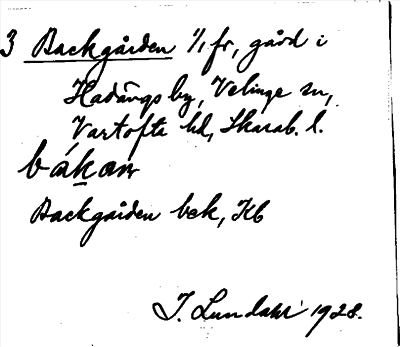 3 Backgården 1/1 fr, gård i
Hadängs by, Velinge sn,
Vartofta hd, Skarab. l.
bákan
Backgården bek, Kb
I. Lundahl 1928.